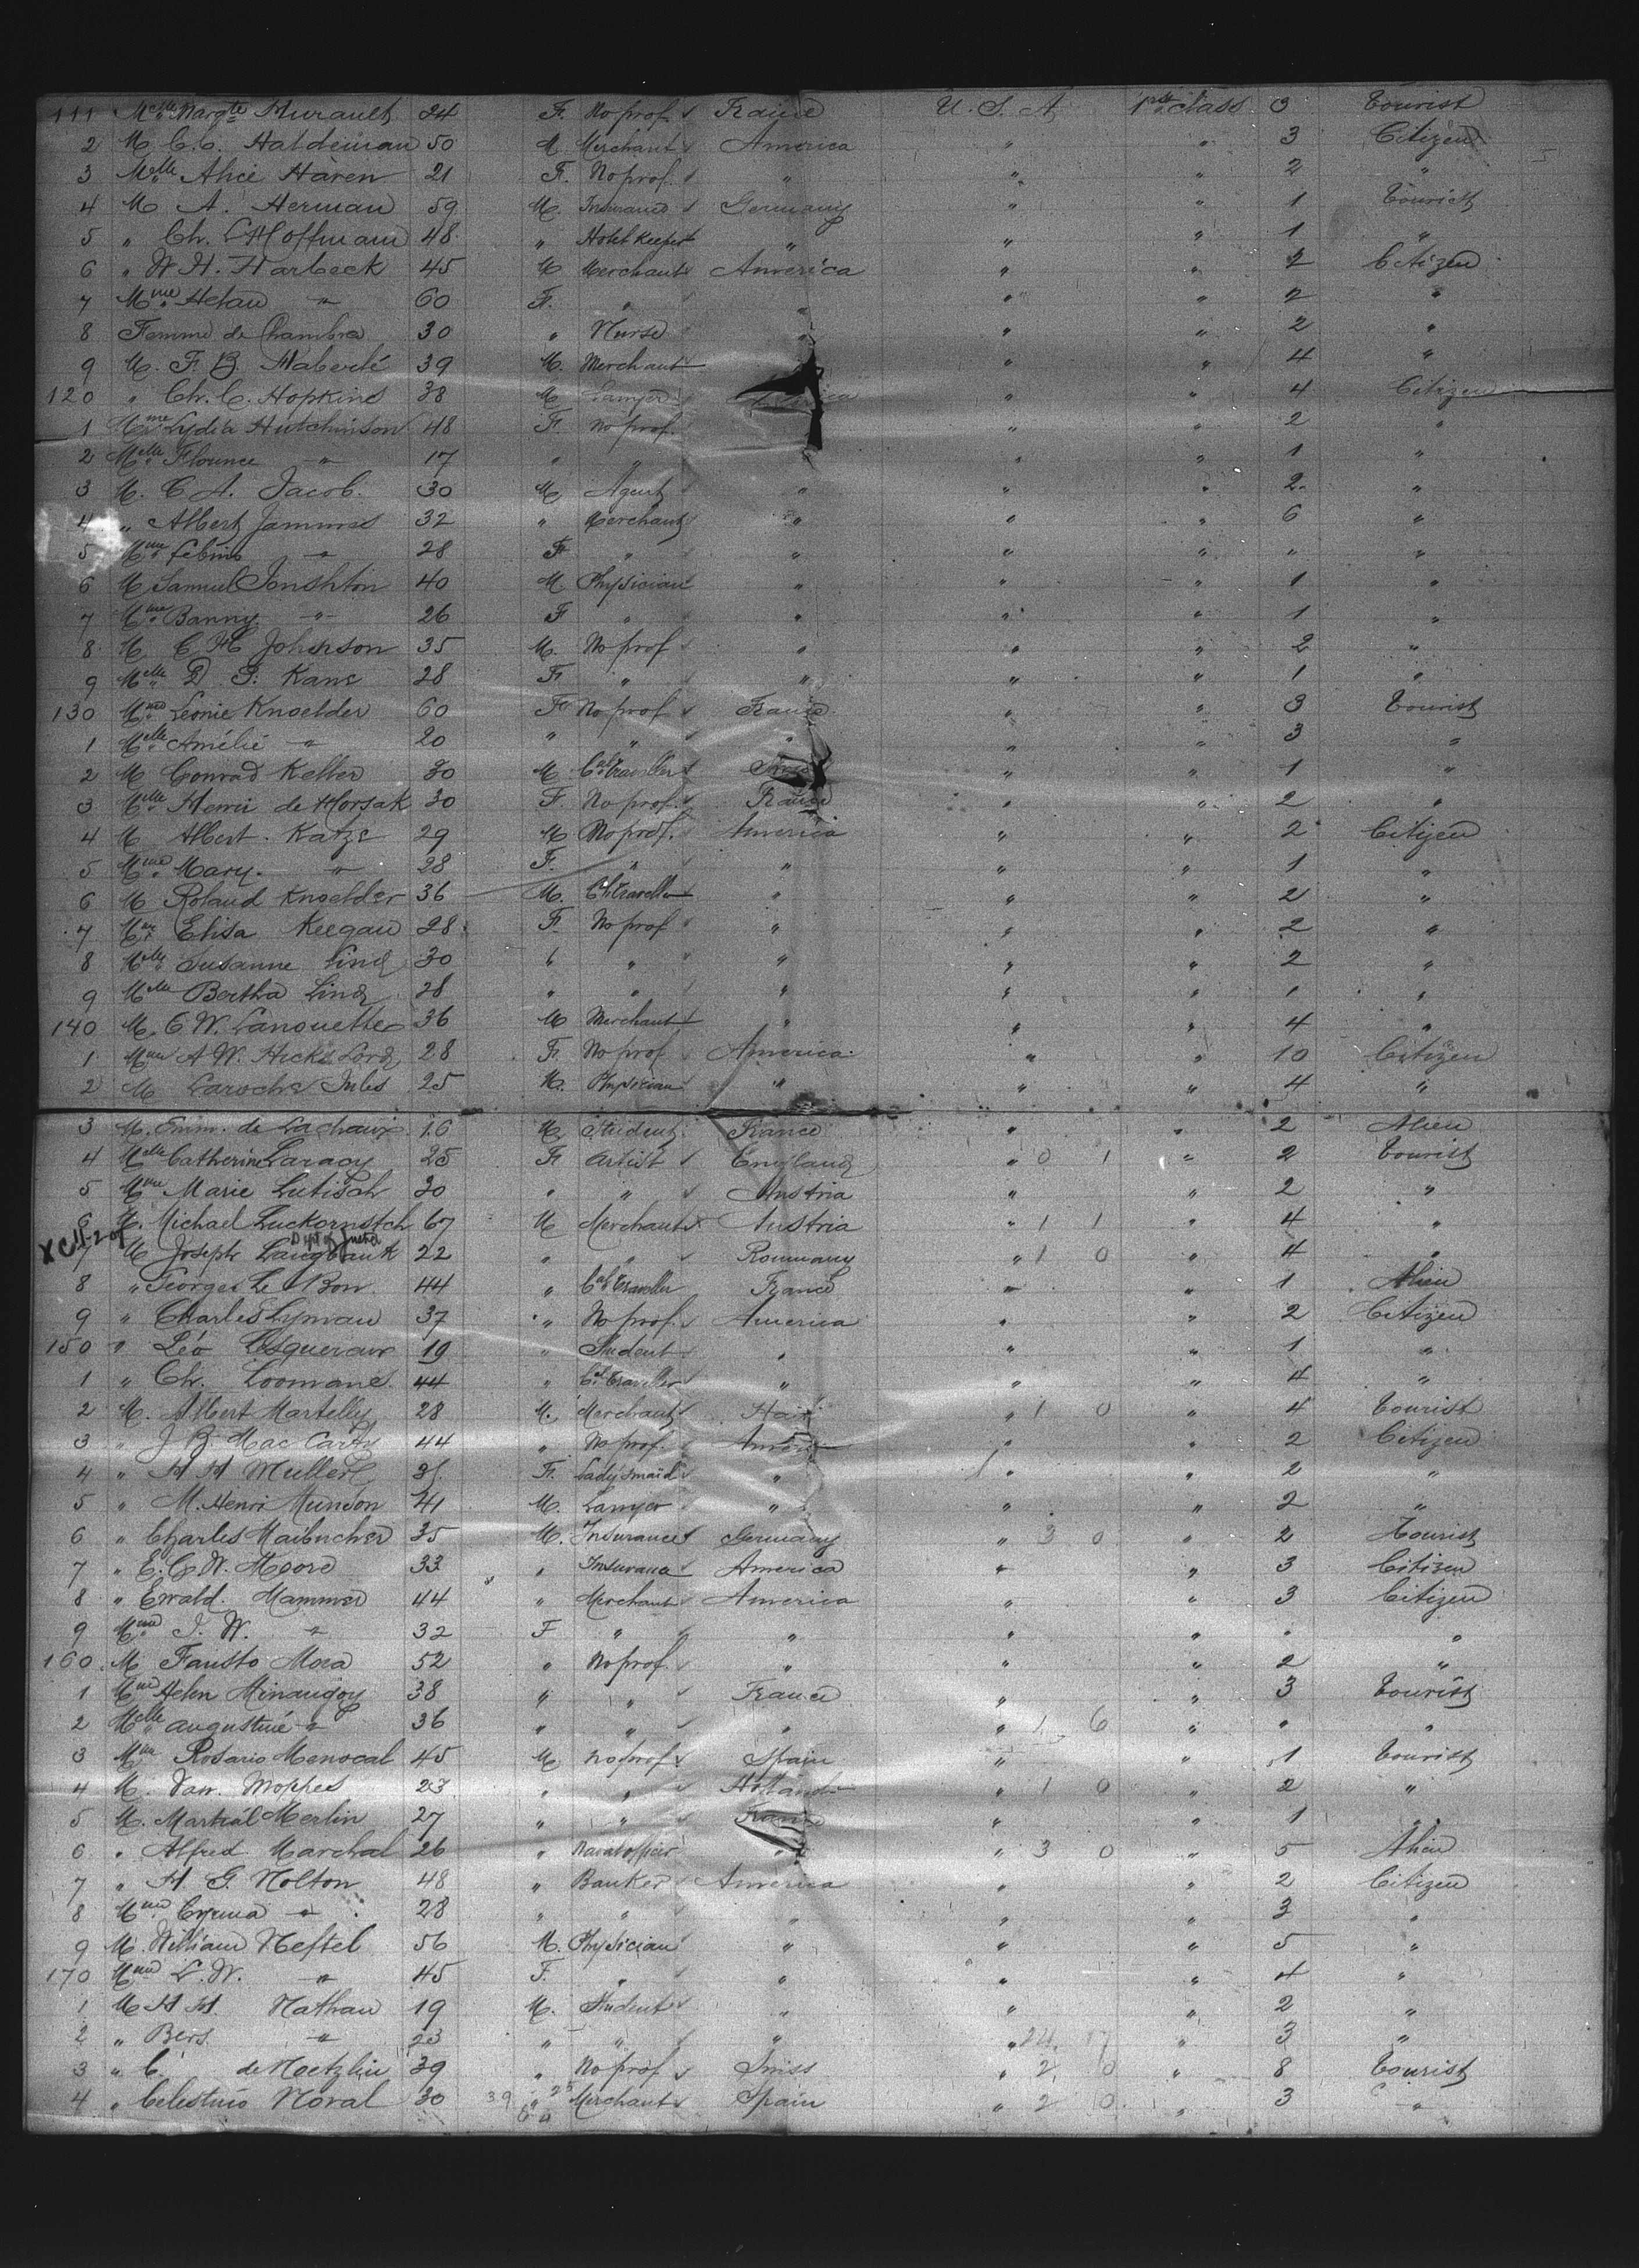 111 Melle Margte Hurault 24 F. No prof. France U. S. A. 1re class 3 Tourist
2 M. C. C. Haldeman 50 M. Merchant America " " 3 Citizen
3 Melle Alice Haren 21 F. No prof. " " " 2 "
4 M A. Herman 59 M. Insurance Germany " " 1 Tourist
5 " Ch. L Hoffmann 48 " Hotel Keeper " " " 1 "
6 " W H. Harbeck 45 M Merchant America " " 2 Citizen
7 Mme " 60 F. " " " " 2 "
8 Femme de Chambre 30 " Nurse " " " 2 "
9 M. F. B. 39 M. Merchant " " 4 "
120 " Ch. C. Hopkins 38 M Lawyer " " 4 Citizen
1 Mme Lydia Hutchinson 48 F. No prof. " " 2 "
2 Melle Florence " 17 " " " " 1 "
3 M. C A. Jacob. 30 M Agent " " " 2 "
4 " Albert Jammes 32 " Merchant " " " 6 "
5 Mme " 28 F " " " " " "
6 M Samuel Jonshton 40 M. Physician " " " 1 "
7 Mme " 26 F " " " " 1 "
8 M C H Johnson 35 M. No prof " " " 2 "
9 Melle D Kane 28 F " " " " 1 "
130 Mme Léonie Knoelder 60 F No prof France " " 3 Tourist
1 Melle Amélie " 20 " " " " " 3 "
2 M Conrad Keller 30 M. Cal Traveller " " 1 "
3 Melle Henri de Horsak 30 F. No prof. France " " 2 "
4 M Albert Katze 29 M No prof. America " " 2 Citizen
5 Mme Mary. " 28 F. " " " " 1 "
6 M Roland Knoelder 36 M. Cl Traveller " " " 2 "
7 Mme Elisa Keegan 28 F. No prof " " " 2 "
8 Melle Susanne Lind 30 " " " " " 2 "
9 Melle Bertha Lind 28 " " " " " 1 "
140 M. C W. Lanouette 36 M Merchant " " " 4 "
1 Mme A W. Hicks Lord 28 F. No prof America " " 10 Citizen
2 M Laroche Jules 25 M. Physician " " " 4 "
3 M. Emm. de Lachaux 16 M. Student France " " 2 Alien
4 Melle Catherine Laracy 25 F Artist England " 0 1 " 2 Tourist
5 Mme Marie Lutisch 30 " " Austria " " 2 "
6 M. Michael Luckornstch 67 M Merchant Austria " 1 1 " 4 "
7 M Joseph Langbank 22 " " Roumany " 1 0 " 4 "
8 " Georges Le Bon 44 " Cal Traveller France " " 1 Alien
9 " Charles Lyman 37 " No prof. America " " 2 Citizen
150 " Léo 19 " Student " " " 1 "
1 " Ch. Loomans 44 " Cal Traveller " " " 4 "
2 M. Albert Martelly 28 M. Merchant Haiti " 1 0 " 4 Tourist
3 " J B. Mac Carty 44 " No prof. America " " 2 Citizen
4 " H H Muller F. Lady'smaid " " " 2 "
5 " M. Henri Munson 41 M. Lawyer " " " 2 "
6 " Charles Maibucher 35 M. Insurance Germany " 3 0 " 2 Tourist
7 " E. C. W. Moore 33 " Insurance America " " 3 Citizen
8 " Ewald. Mammer 44 " Merchant America " " 3 Citizen
9 Mme J. W. " 32 F " " " " " "
160 M Fausto Mora 52 " No prof. " " " 2 "
1 Mme Helen Minaugoy 38 " " France " " 3 Tourist
2 Melle Augustine " 36 " " " " 1 6 " " "
3 Mme Rosario Menocal 45 M. No prof. Spain " " 1 Tourist
4 M. Van. Moppes 23 " " Holland " 1 0 " 2 "
5 M. Martial Merlin 27 " " France " " 1 "
6 " Alfred Marchal 26 " Naval officer " " 3 0 " 5 Alien
7 " H. G. Nolton 48 " Banker America " " 2 Citizen
8 Mme " 28 " " " " " 3 "
9 M. William Neftel 56 M. Physician " " " 5 "
170 Mme L. W. " 45 F. " " " " 4 "
1 M H H. Nathan 19 M. Student " " " 2 "
2 " Bers. " 23 " " " " 24 17 " 3 "
3 " C. de Noetzlin 39 " No prof Swiss " 2 0 " 8 Tourist
4 " Celestino Noval 30 " Merchant Spain " 2 0 " 3 "